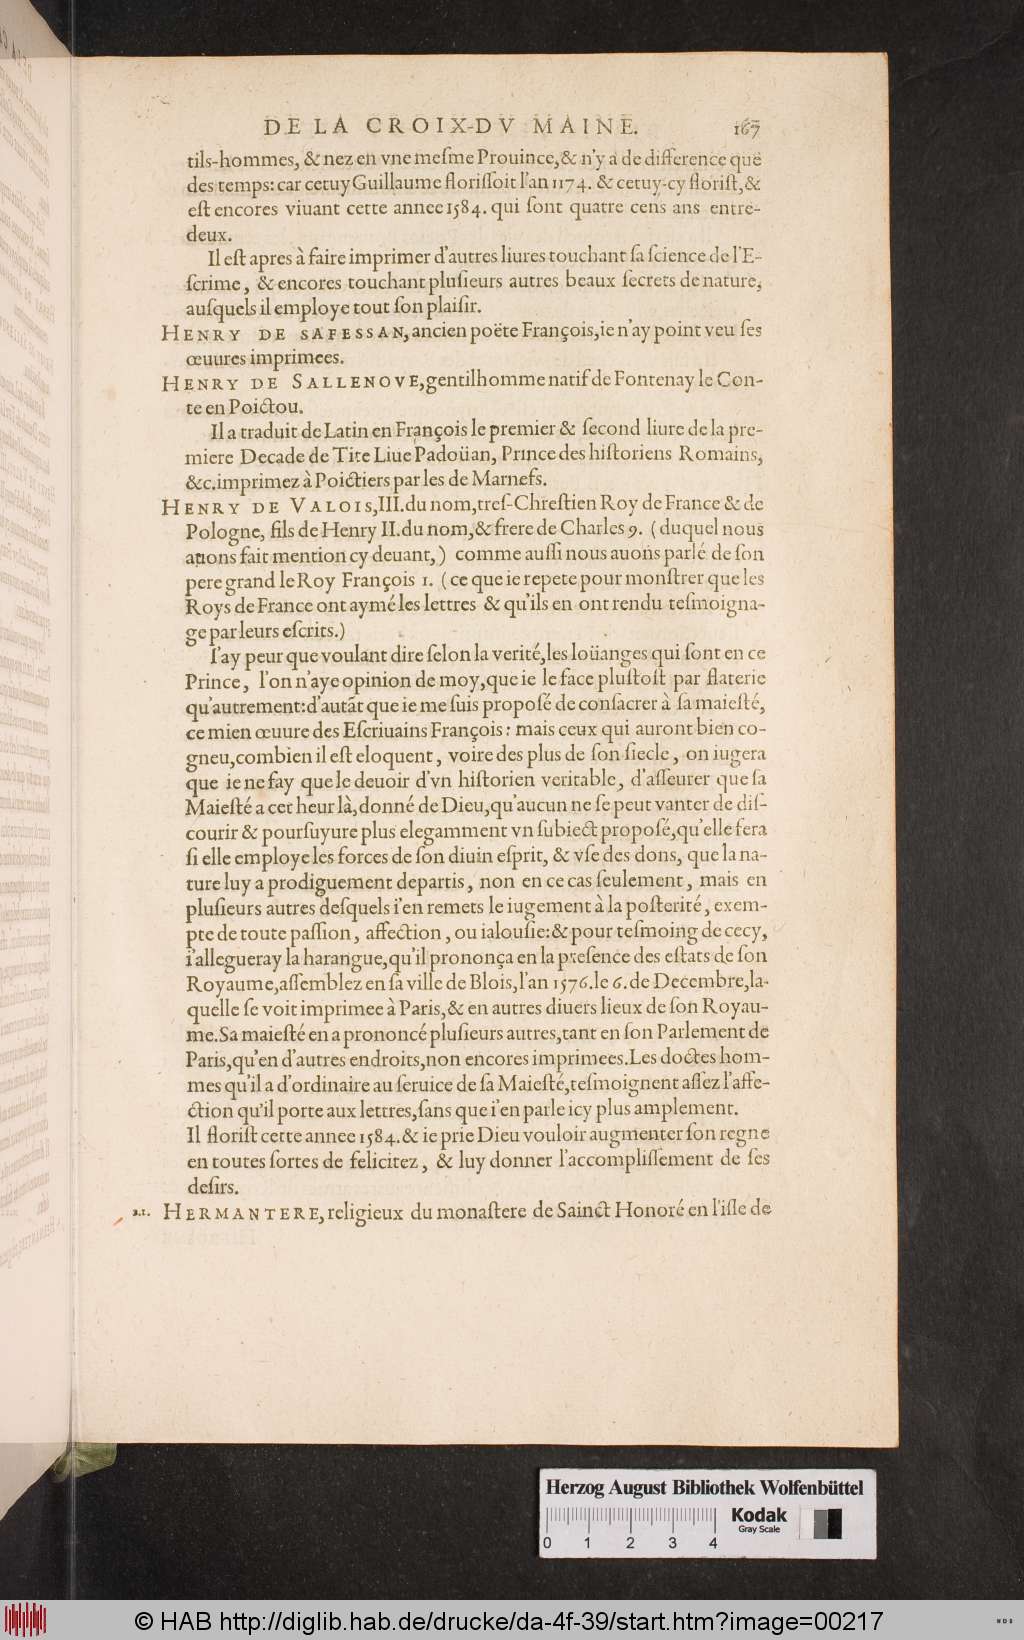 DE LA CROIX-DV MAINE. 167
tils-hommes, & nez en vne meſme Prouince, & n'y a de difference que
des temps: car cetuy Guillaume floriſſoit l'an 1174. & cetuy-cy floriſt, &
eſt encores viuant cette annee 1584. qui ſont quatre cens ans entre-
deux.
Il eſt apres à faire imprimer d'autres liures touchant ſa ſcience de l'E-
ſcrime, & encores touchant pluſieurs autres beaux ſecrets de nature,
auſquels il employe tout ſon plaiſir.
HENRY DE SAFESSAN, ancien poëte François, ie n'ay point veu ſes
œuures imprimees.
HENRY DE SALLENOVE, gentilhomme natif de Fontenay le Con-
te en Poictou.
Il a traduit de Latin en François le premier & ſecond liure de la pre-
miere Decade de Tite Liue Padoüan, Prince des hiſtoriens Romains,
&c. imprimez à Poictiers par les de Marnefs.
HENRY DE VALOIS, III. du nom, treſ-Chreſtien Roy de France & de
Pologne, fils de Henry II. du nom, & frere de Charles 9. (duquel nous
auons fait mention cy deuant,) comme auſſi nous auons parlé de ſon
pere grand le Roy François 1. (ce que ie repete pour monſtrer que les
Roys de France ont aymé les lettres & qu'ils en ont rendu teſmoigna-
ge par leurs eſcrits.)
I'ay peur que voulant dire ſelon la verité, les loüanges qui ſont en ce
Prince, l'on n'aye opinion de moy, que ie le face pluſtoſt par flaterie
qu'autrement: d'autãt que ie me ſuis propoſé de conſacrer à ſa maieſté,
ce mien œuure des Eſcriuains François: mais ceux qui auront bien co-
gneu, combien il eſt eloquent, voire des plus de ſon ſiecle, on iugera
que ie ne fay que le deuoir d'vn hiſtorien veritable, d'aſſeurer que ſa
Maieſté a cet heur là, donné de Dieu, qu'aucun ne ſe peut vanter de diſ-
courir & pourſuyure plus elegamment vn ſubiect propoſé, qu'elle fera
ſi elle employe les forces de ſon diuin eſprit, & vſe des dons, que la na-
ture luy a prodiguement departis, non en ce cas ſeulement, mais en
pluſieurs autres deſquels i'en remets le iugement à la poſterité, exem-
pte de toute paſſion, affection, ou ialouſie: & pour teſmoing de cecy,
i'allegueray la harangue, qu'il prononça en la preſence des eſtats de ſon
Royaume, aſſemblez en ſa ville de Blois, l'an 1576. le 6. de Decembre, la-
quelle ſe voit imprimee à Paris, & en autres diuers lieux de ſon Royau-
me. Sa maieſté en a prononcé pluſieurs autres, tant en ſon Parlement de
Paris, qu'en d'autres endroits, non encores imprimees. Les doctes hom-
mes qu'il a d'ordinaire au ſeruice de ſa Maieſté, teſmoignent aſſez l'affe-
ction qu'il porte aux lettres, ſans que i'en parle icy plus amplement.
Il floriſt cette annee 1584. & ie prie Dieu vouloir augmenter ſon regne
en toutes ſortes de felicitez, & luy donner l'accompliſſement de ſes
deſirs.
21. HERMANTERE, religieux du monaſtere de Sainct Honoré en l'iſle de
Herzog August Bibliothek Wolfenbüttel
Kodak
Gray Scale
0 1 2 3 4
© HAB http://diglib.hab.de/drucke/da-4f-39/start.htm?image=00217